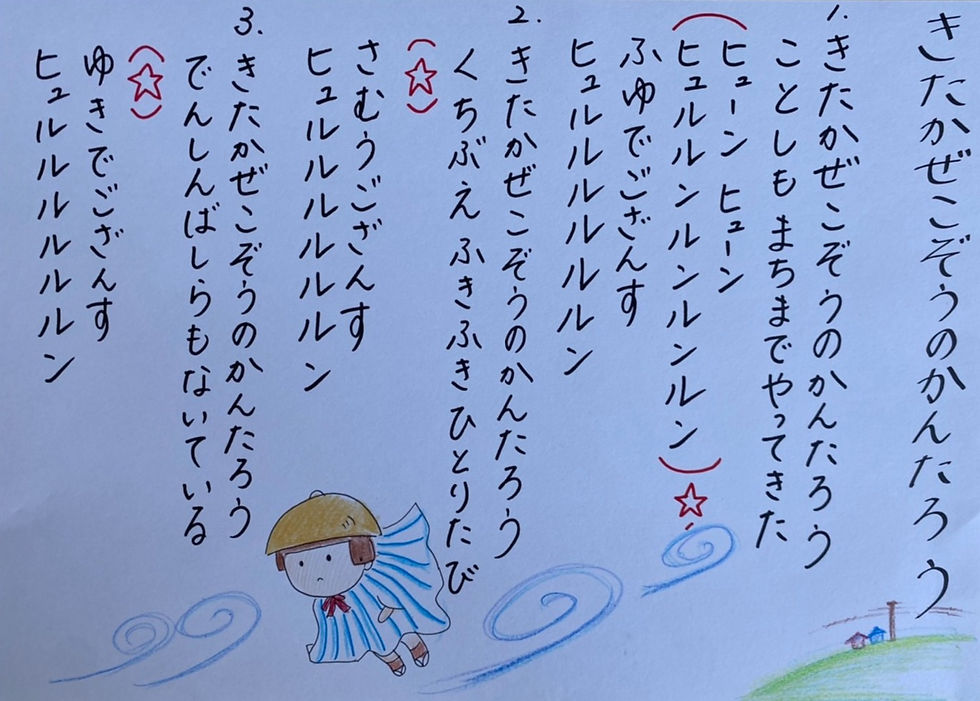 きたかぜこぞうのかんたろう
1. きたかぜこぞうのかんたろう
ことしも まちまでやってきた
(ヒューン ヒューン
ヒュルルンルンルンルン)☆
ふゆでござんす
ヒュルルルルルルン
2. きたかぜこぞうのかんたろう
くちぶえ ふきふきひとりたび
(☆)
さむうござんす
ヒュルルルルルルン
3. きたかぜこぞうのかんたろう
でんしんばしらもないている
(☆)
ゆきでござんす
ヒュルルルルルルン